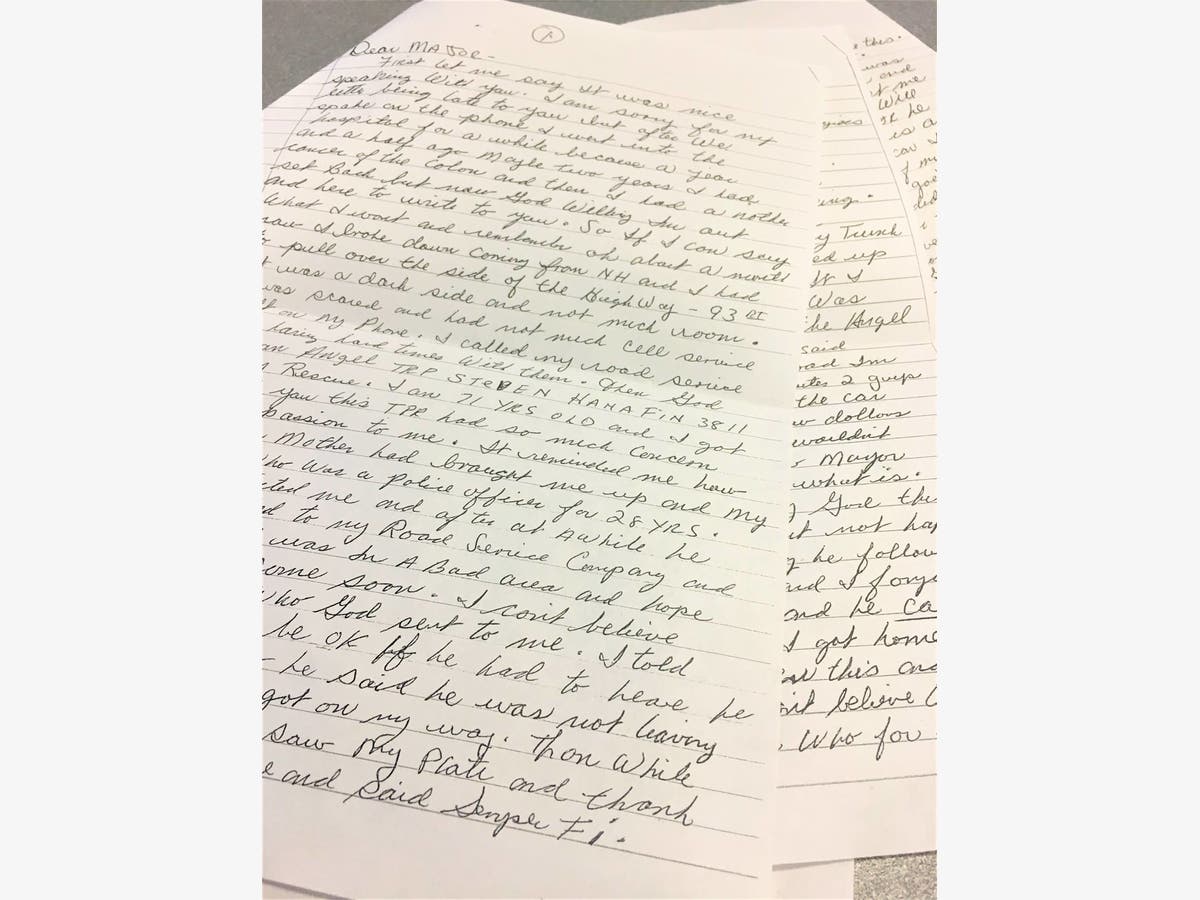 1
Dear MAJOR -
First let me say it was nice
speaking with you. I am sorry for my
letter being late to you but after we
spoke on the phone I went into the
hospital for a while because a year
and a half ago Maybe two years I had
cancer of the Colon and then I had a nother
set Back but now God Willing Im out
and here to write to you. So If I can say
What I want and remember oh about a month
now I broke down coming from NH and I had
pull over the side of the HighWay - 93 RT
t was a dark side and not much room.
was scared and had not much cell service
ft on my Phone. I called my road service
having hard times With them. Then God
an Angel TRP STEVEN HANAFIN 3811
Rescue. I am 71 YRS OLD and I got
you this TPR had so much Concern
passion to me. It reminded me how
Mother had brought me up and my
ho was a Police Officer for 28 YRS.
cted me and after at Awhile he
d to my Road Service Company and
was In A Bad area and hope
ome soon. I cant believe
who God sent to me. I told
be OK if he had to leave he
he said he was not leaving
got on my way. Than While
saw my Plate and thank
e and said Semper Fi.
e this.
was
and
it me
Will
If he
is a
car I
f my
goe
did
y Trunk
ed up
If I
Was
the Angel
said
road Im
utes 2 guys
the car
w dollars
wouldnt
Mayor
what is.
God the
ut not hap
he follow
and I forg
and he ca
I got home
this and
nt believe
Who for